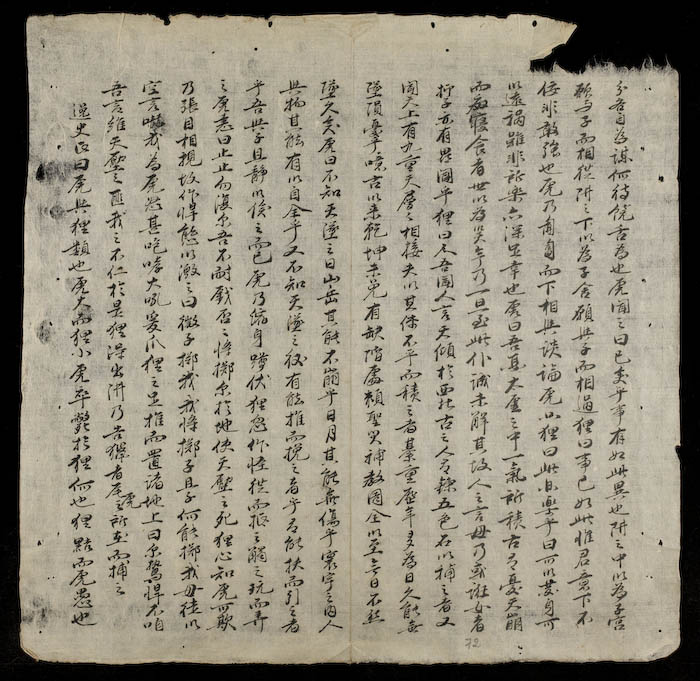 分各自為謀何待饒舌為也虎聞之曰已矣乎事有如此異也阱之中以為子宮
願與子而相從阱之下以為子舍願與子而相過狸曰事已如此惟君意下不
佞非敢強也虎乃匍匐而下相與談論虎叫狸曰此且樂乎曰可以安身可
以遠禍雖非所樂亦深足幸也虎曰吾聞太虛之中一氣所積古有憂天崩
而廢寢食者世以為笑乎乃一旦至此僕誠未解其故人之言毋乃或誑汝者
狸子亦有異聞乎狸曰久吾聞人言天傾於西北古之人有鍊五色石以補之者又
聞天上有九重天層之相接夫以其体不平而積之者綦重歷年多為日久能無
墜隕臺嘻古以來乾坤未免有缺陷處賴聖男補救圖全以至今日不然
墜久矣虎曰不知天墜之日山岳其能不崩乎日月其能無傷乎寰宇之內人
與物其能有以自全乎又不知天墜之後有能推而挽之者乎有能扶而引之者
乎吾與子且靜以俟之而已虎乃縮身蹲伏狸忽作怪狀而振之觸之玩而弄
之虎恚曰止止勿復爾吾不耐戲否之將擲爾於地使天壓之死狸心知虎可欺
乃張目相視故作悍態以激之曰微子擲我我將擲子且子何能擲我毋徒以
空言嚇我為虎怒甚咆哮大吼爰爪狸之足推而置諸地上曰爾驚悍不咱
吾言維天壓之匪我之不仁於是狸得出阱乃告獵者虎之所在而捕之
逸史氏曰虎與狸類也虎大而狸小虎卒斃於狸何也狸黠而虎愚也
72